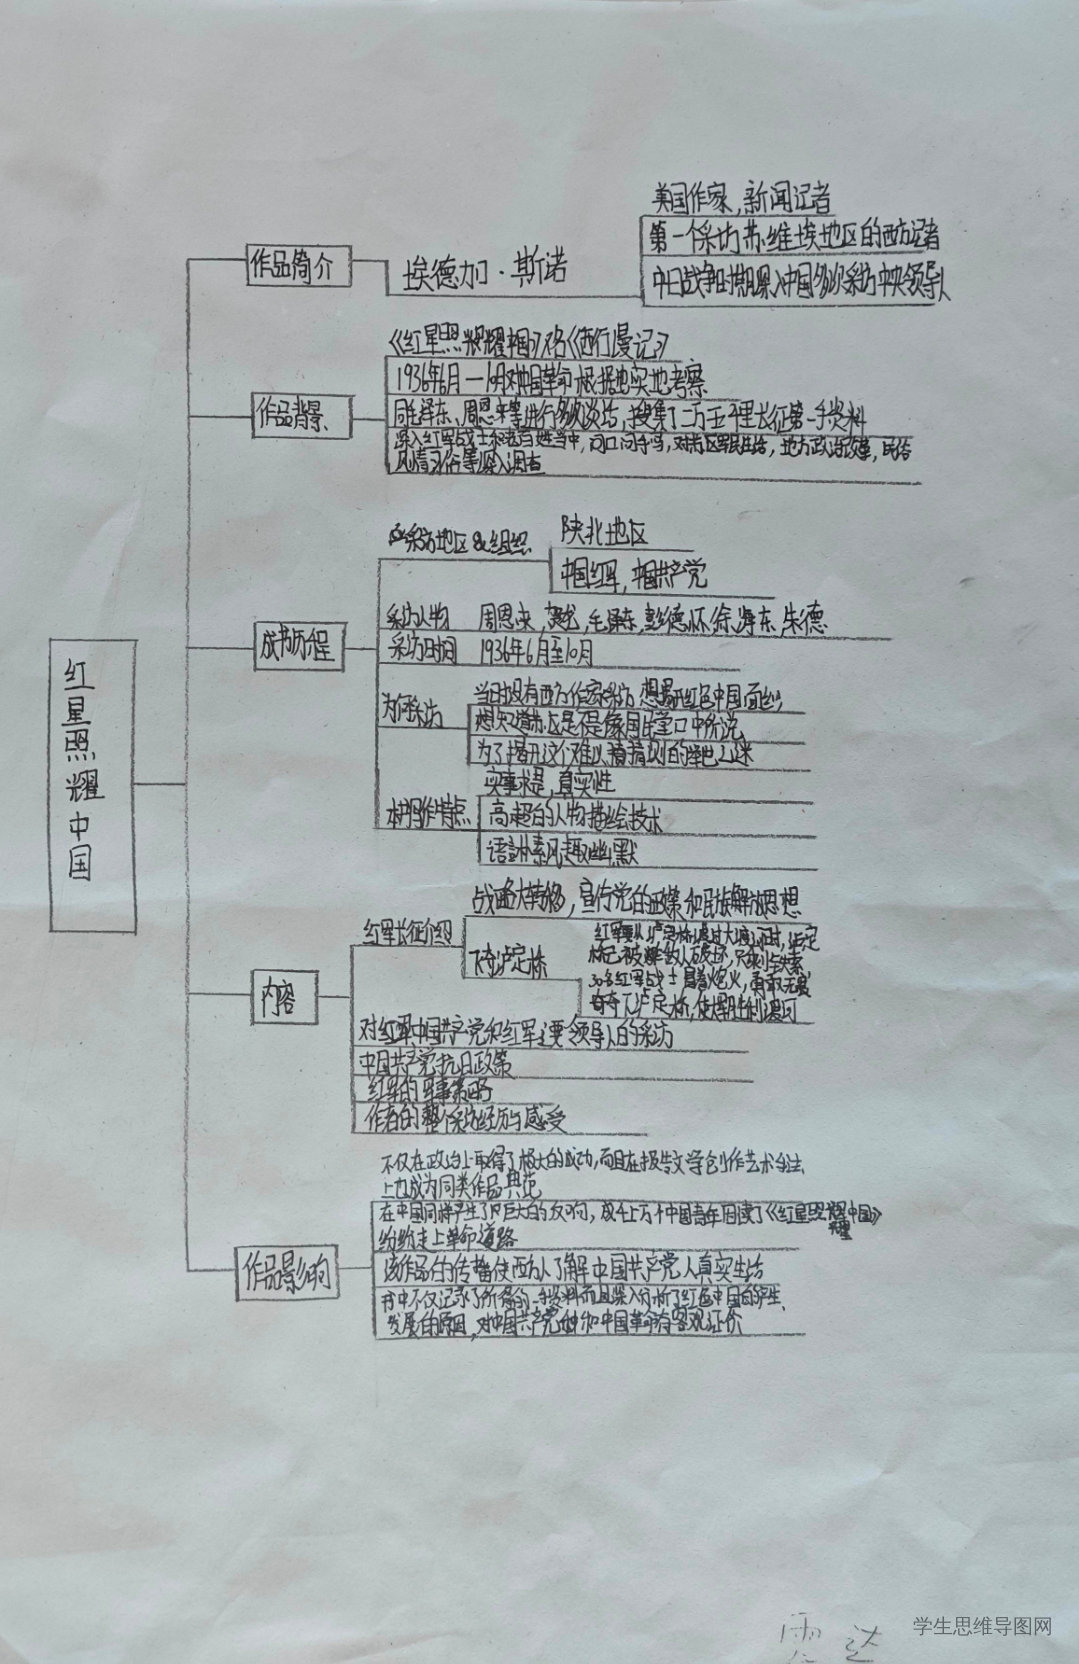 美国作家,新闻记者
第一个采访苏维埃地区的西方记者
作品简介
埃德加·斯诺
中日战争时期深入中国多次采访中央领导人
《红星照耀中国》又名《西行漫记》
1936年6月—10月对中国革命根据地实地考察
作品背景
同毛泽东、周恩来等进行多次谈话,搜集了二万五千里长征第一手资料
深入红军战士和老百姓当中,问口问手写,对苏区军民生活,地方政治改革,民俗
风情习俗等深入调查
采访地区&组织
陕北地区
中国红军,中国共产党
采访人物 周恩来,贺龙,毛泽东,彭德怀,徐海东,朱德
成书历程
采访时间 1936年6月至10月
当时没有西方作家采访 想揭开红色中国面纱
为何采访
想知道苏区是不是像国民党口中所说
为了揭开这个难以猜的谜
实事求是,真实性
本书写作特点
高超的人物描绘技术
语言朴素风趣幽默
红
星
照
耀
中
国
战略大转移,宣传党的政策和民族解放思想
红军长征介绍
飞夺泸定桥
红军要从泸定桥渡过大渡河时,泸定
桥已被敌人破坏,只剩铁索
30名红军战士冒着炮火,勇敢无畏
夺下泸定桥,使红军胜利渡河
内容
对中国共产党和红军主要领导人的采访
中国共产党抗日政策
红军的军事策略
作者的整个采访经历与感受
不仅在政治上取得了极大的成功,而且在报告文学创作艺术
上也成为同类作品典范
在中国同样产生了巨大的反响,成千上万个中国青年因读了《红星照耀中国》
纷纷走上革命道路
作品影响
该作品的传播使西方人了解中国共产党人真实生活
书中不仅记录了所得的一手资料而且深入分析了红色中国的产生、
发展的原因,对中国共产党和中国革命有客观评价
学生思维导图网